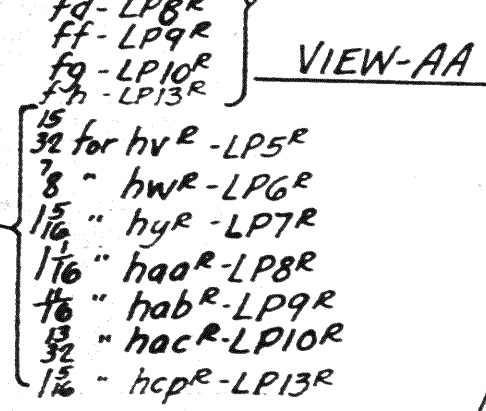 fd - LP8ᴿ
ff - LP9ᴿ
fg - LP10ᴿ
fh - LP13ᴿ
VIEW-AA
15/32 for hvᴿ - LP5ᴿ
7/8 " hwᴿ - LP6ᴿ
1 5/16 " hyᴿ - LP7ᴿ
1 1/16 " haaᴿ - LP8ᴿ
11/16 " habᴿ - LP9ᴿ
13/32 " hacᴿ - LP10ᴿ
1 5/16 " hcpᴿ - LP13ᴿ